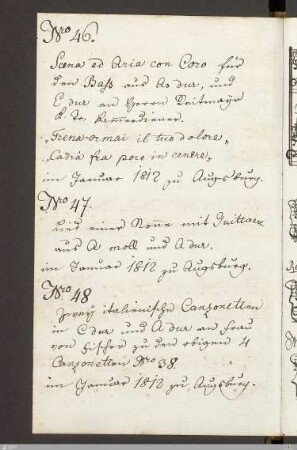 Nro 46.
Scena ed Aria con Coro für
den Baß aus As dur, und
E dur an Herrn Weitmayr
K. K. Kammerdiener.
„Frena ormai il tuo dolore„
„Cadrà fra poco in cenere„
im Januar 1812 zu Augsburg.
Nro 47.
Lied einer Nonne mit Guittare
aus A moll und A dur.
im Januar 1812 zu Augsburg.
Nro 48
Zwey italienische Canzonetten
in C dur und A dur an Frau
von Fischer zu den obigen 4
Canzonetten Nro 38.
im Januar 1812 zu Augsburg.